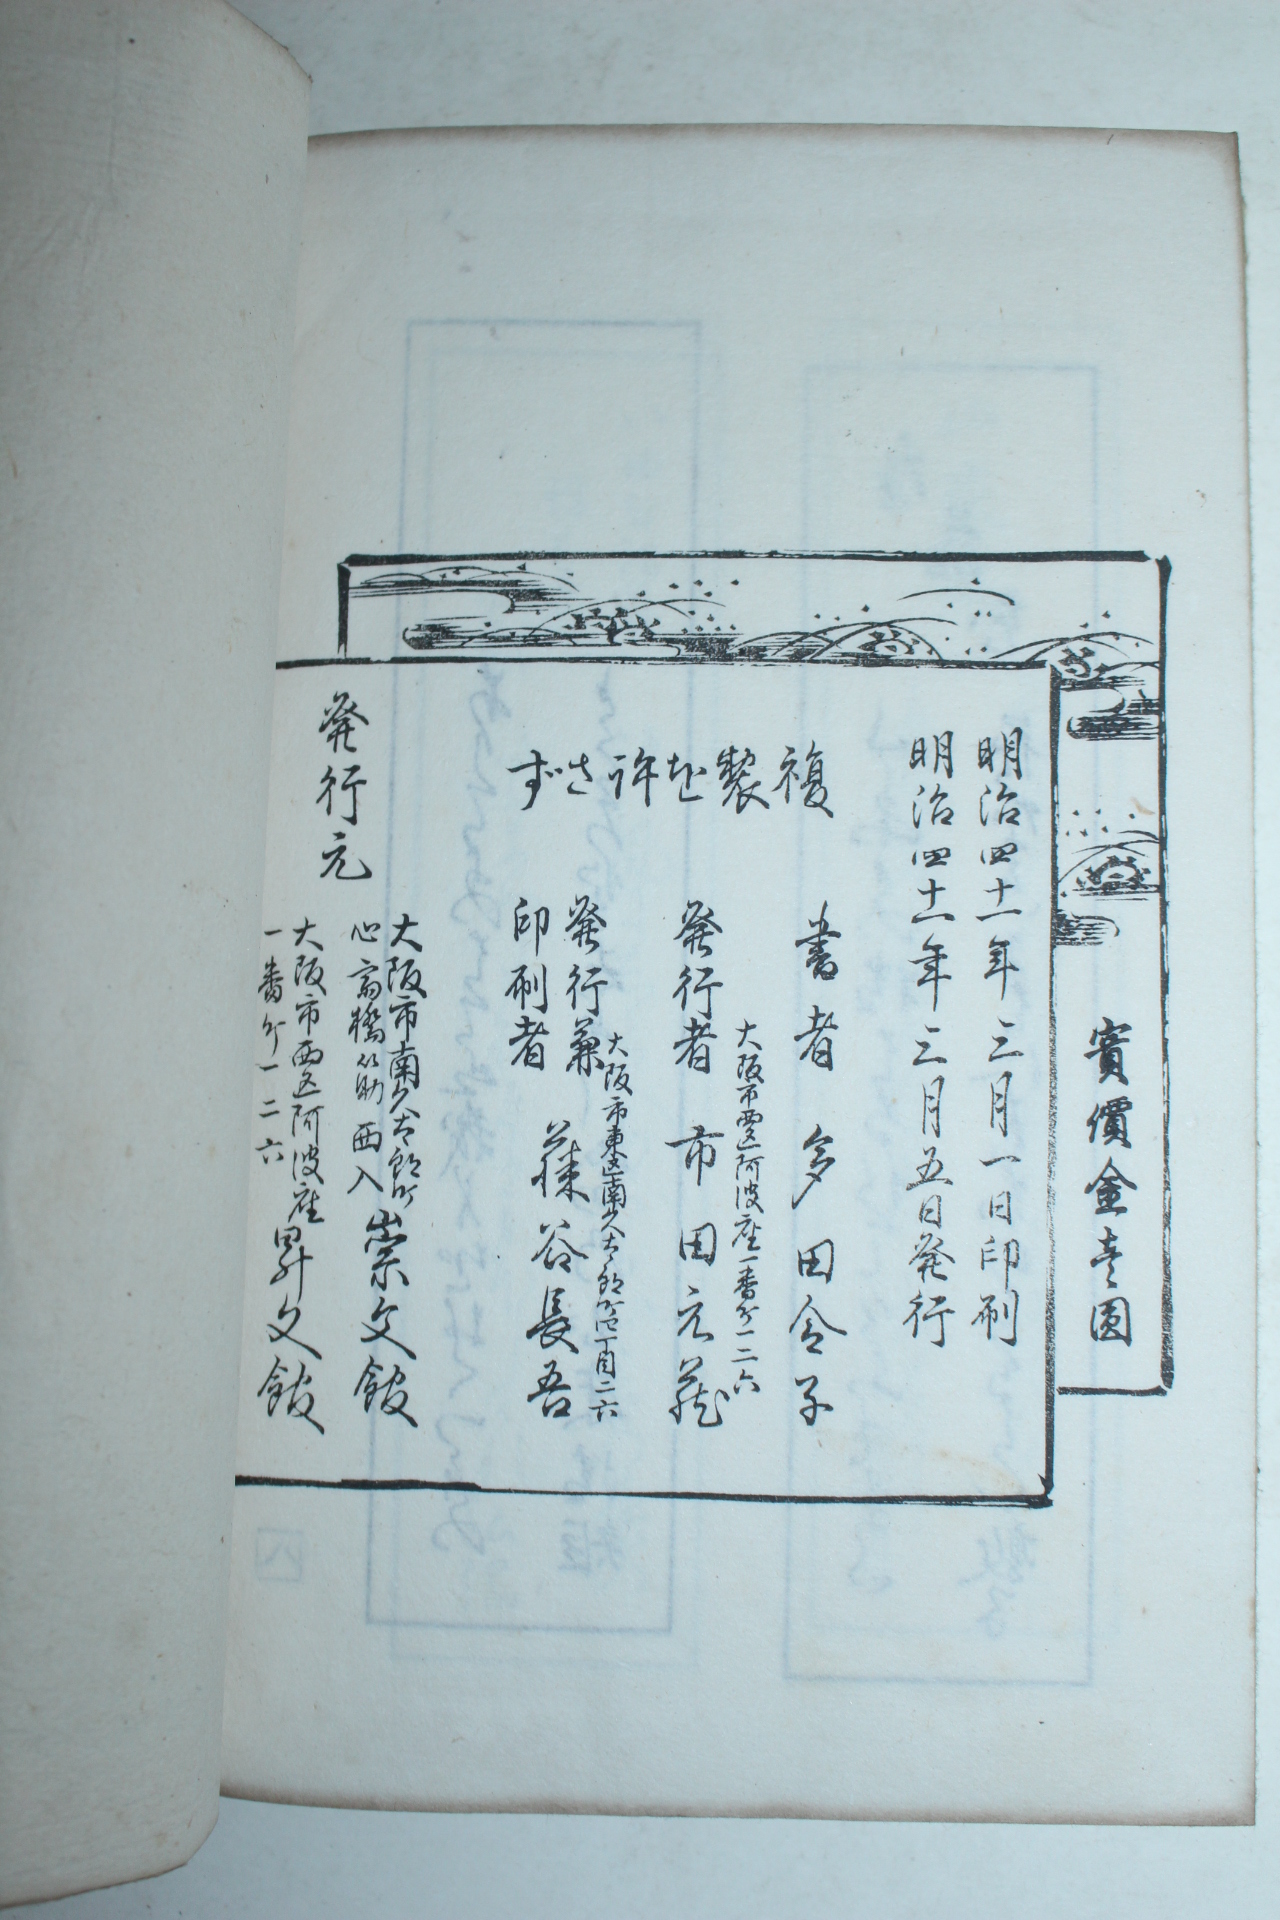 實價金壹圓
明治四十一年三月一日印刷
明治四十一年三月五日発行
複製を許さず
書者 多田令子
大阪市西区阿波座一番丁一二六
発行者 市田元蔵
大阪市東区南久太郎町四丁目二六
発行兼
印刷者 藤谷長吾
発行元
大阪市南久太郎町
心斎橋筋西入 崇文館
大阪市西区阿波座
一番丁一二六 昇文館